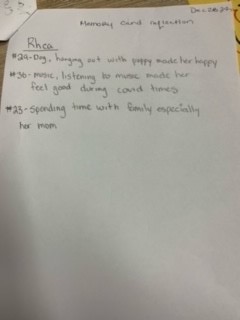 Memory card reflection
Rhea
#29-Dog, hanging out with puppy made her happy
#30-music, listening to music made her
feel good during covid times
#23-Spending time with family especially
her mom